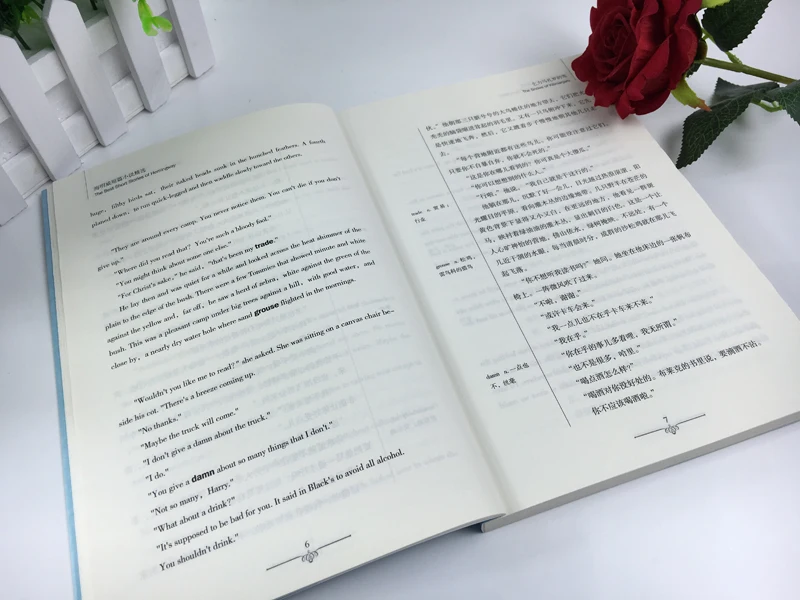 海明威短篇小说精选
The Best Short Stories of Hemingway
huge, filthy birds sat, their naked heads sunk in the hunched feathers. A fourth
planed down, to run quick-legged and then waddle slowly toward the others.
"They are around every camp. You never notice them. You can't die if you don't
give up."
"Where did you read that? You're such a bloody fool."
"You might think about some one else."
"For Christ's sake," he said, "that's been my trade."
He lay then and was quiet for a while and looked across the heat shimmer of the
plain to the edge of the bush. There were a few Tommies that showed minute and white
against the yellow and, far off, he saw a herd of zebra, white against the green of the
bush. This was a pleasant camp under big trees against a hill, with good water, and
close by, a nearly dry water hole where sand grouse flighted in the mornings.
"Wouldn't you like me to read?" she asked. She was sitting on a canvas chair be-
side his cot. "There's a breeze coming up.
"No thanks."
"Maybe the truck will come."
"I don't give a damn about the truck."
"I do."
"You give a damn about so many things that I don't."
"Not so many, Harry."
"What about a drink?"
"It's supposed to be bad for you. It said in Black's to avoid all alcohol.
You shouldn't drink."
6
乞力马扎罗的雪
The Snows of Kilimanjaro
"每个营地附近都有这些鸟儿。你可能没注意过它们。
只要你不自暴自弃，你就不会死的。"
"这是你在哪儿看到的？你可真是个大傻瓜。"
"你可以想想别的什么人。"
"行啊，"他说，"我自己就是干这行的。"
trade n. 贸易，
行业
grouse n. 松鸡，
雷鸟科的猎鸟
几近干涸的水洼，每当清晨时分，成群的沙松鸡就在那儿飞
起飞落。
"你不想听我读书吗？"她问，她坐在他床边的一张帆布
椅上。一阵微风吹了过来。
"不啦，谢谢。"
"或许卡车会来。"
"我一点儿也不在乎卡车来不来。"
"我在乎。"
"你在乎的事儿多着哩，我无所谓。"
"也不是很多，哈里。"
"喝点酒怎么样？"
damn n. 一点也
不，丝毫
"喝酒对你没好处的。布莱克的书里说，要滴酒不沾。
你不应该喝酒啦。"
7